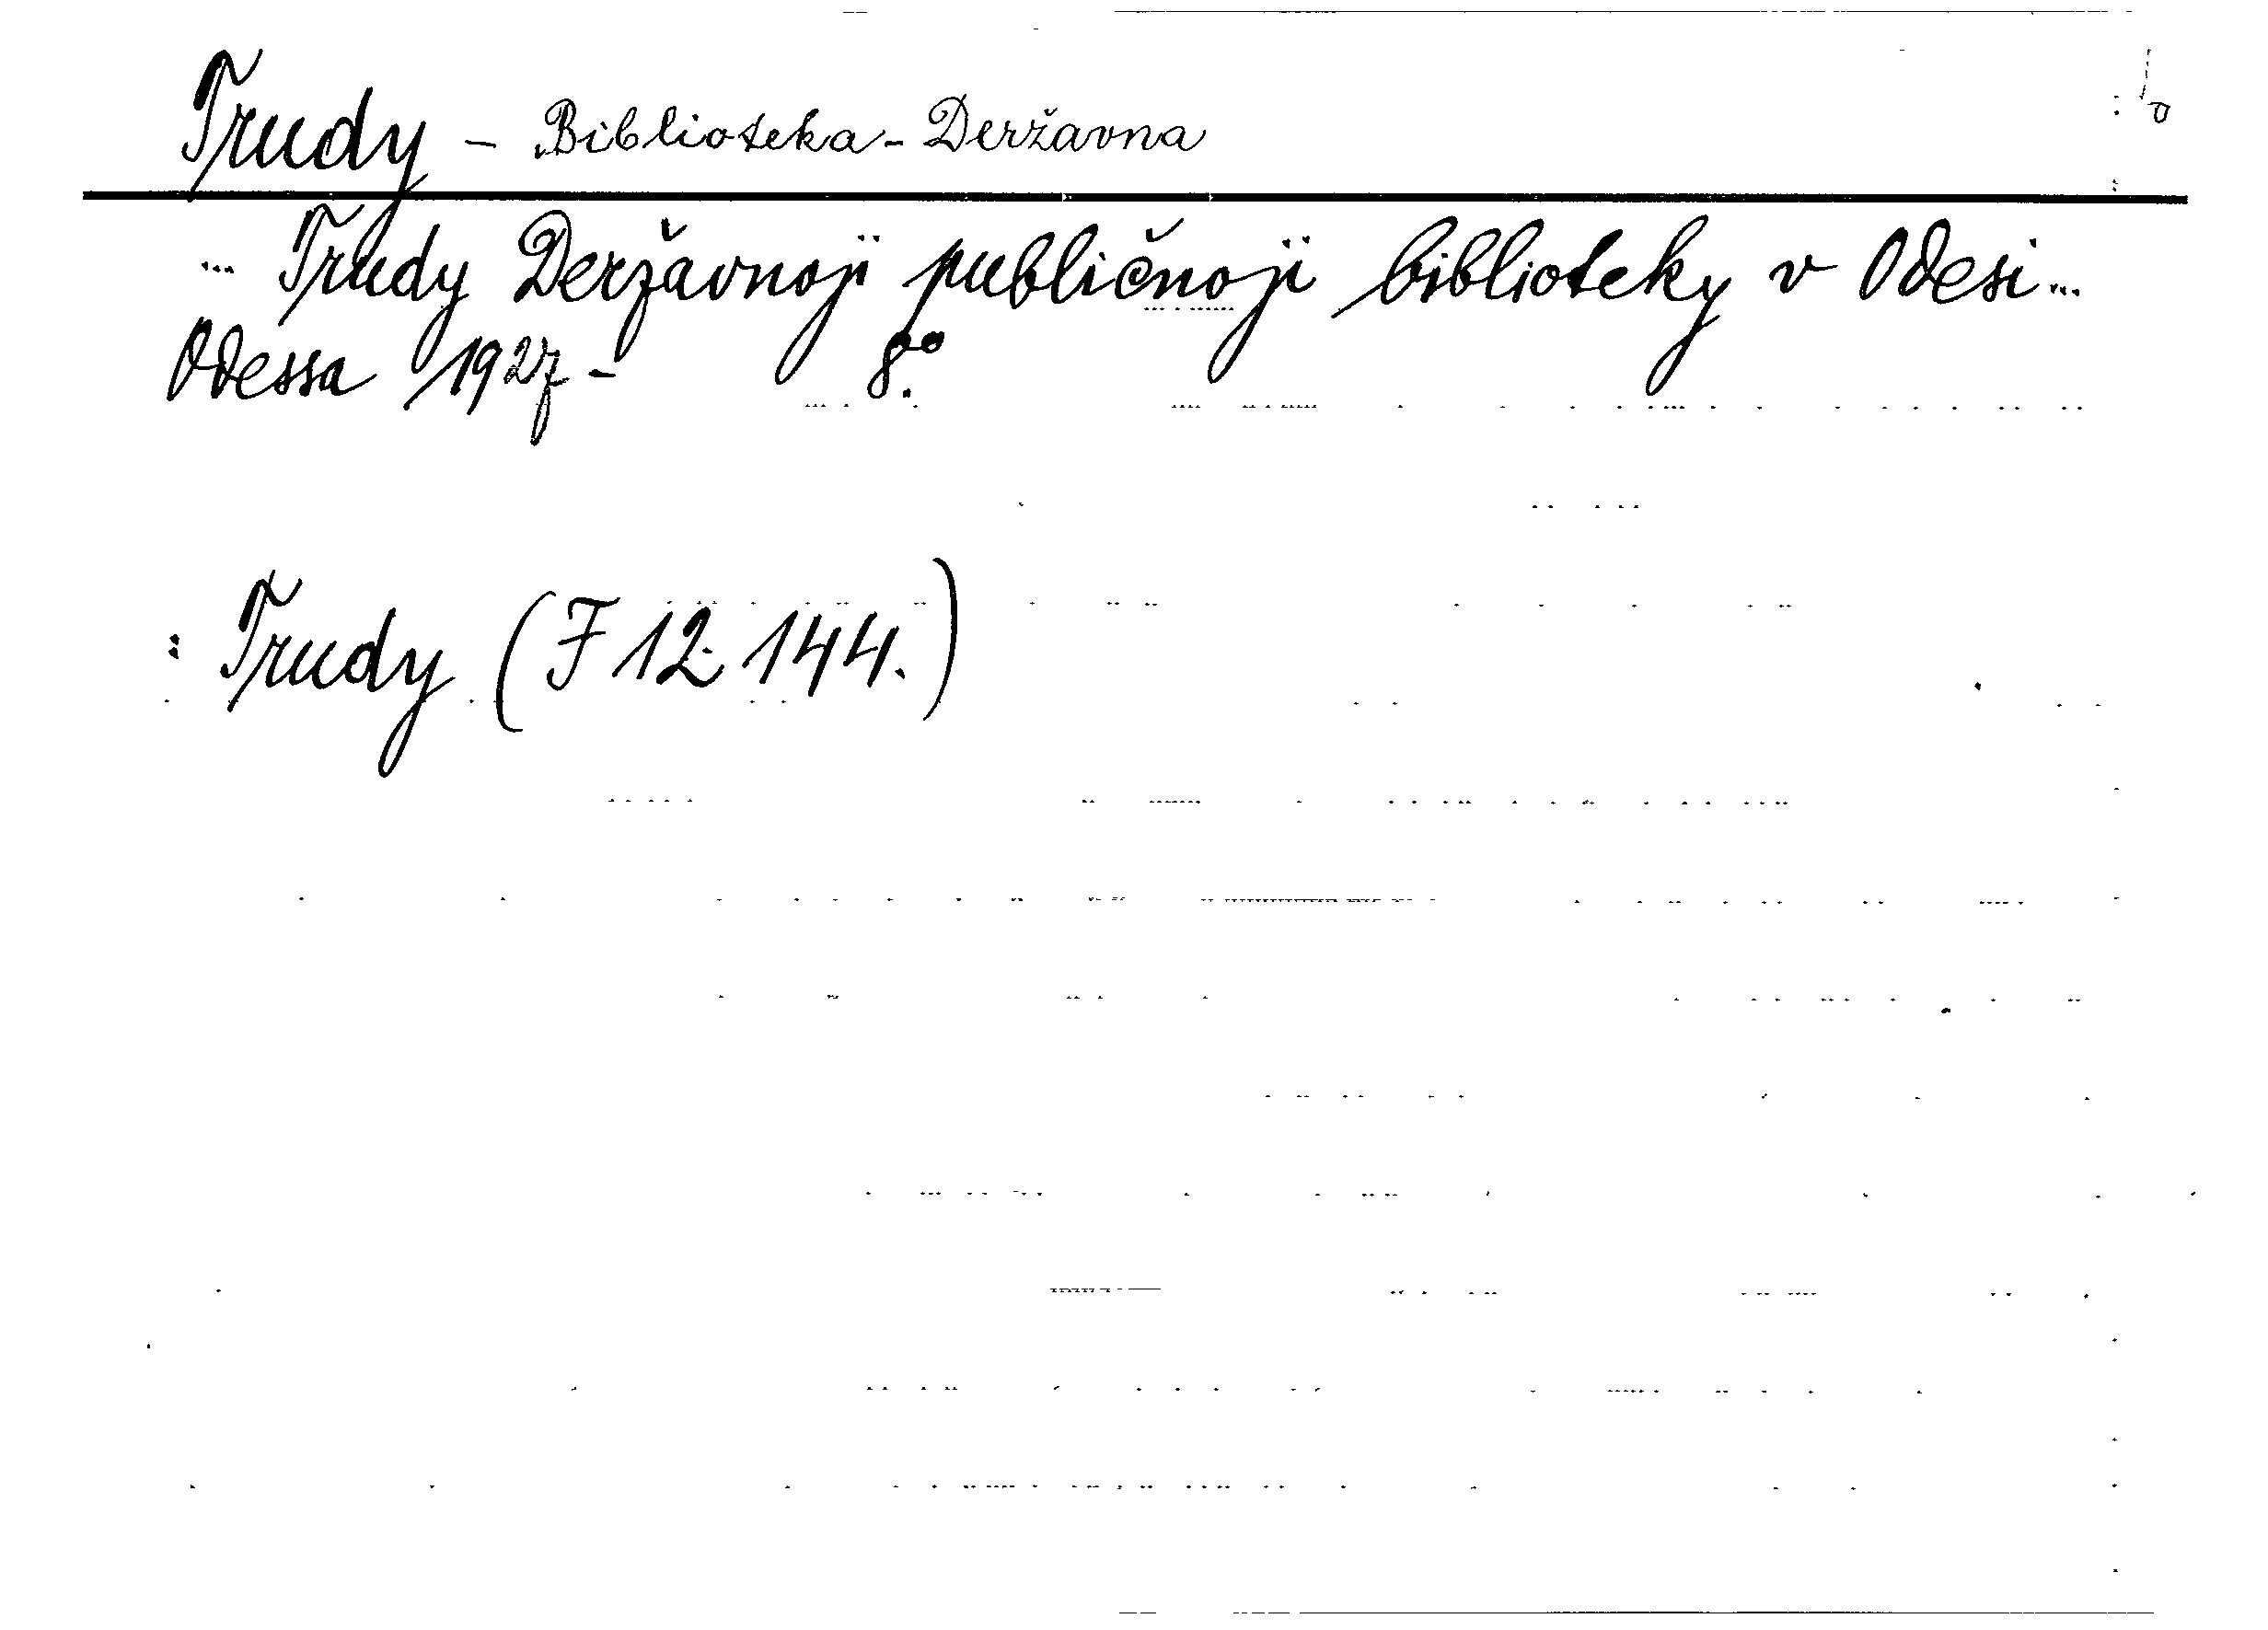 Trudy - Biblioteka - Deržavna
... Trudy Deržavnoji̋ publičnoji̋ biblioteky v Odesi...
Odessa 1927 - 8.°
: Trudy (F 12 144.)